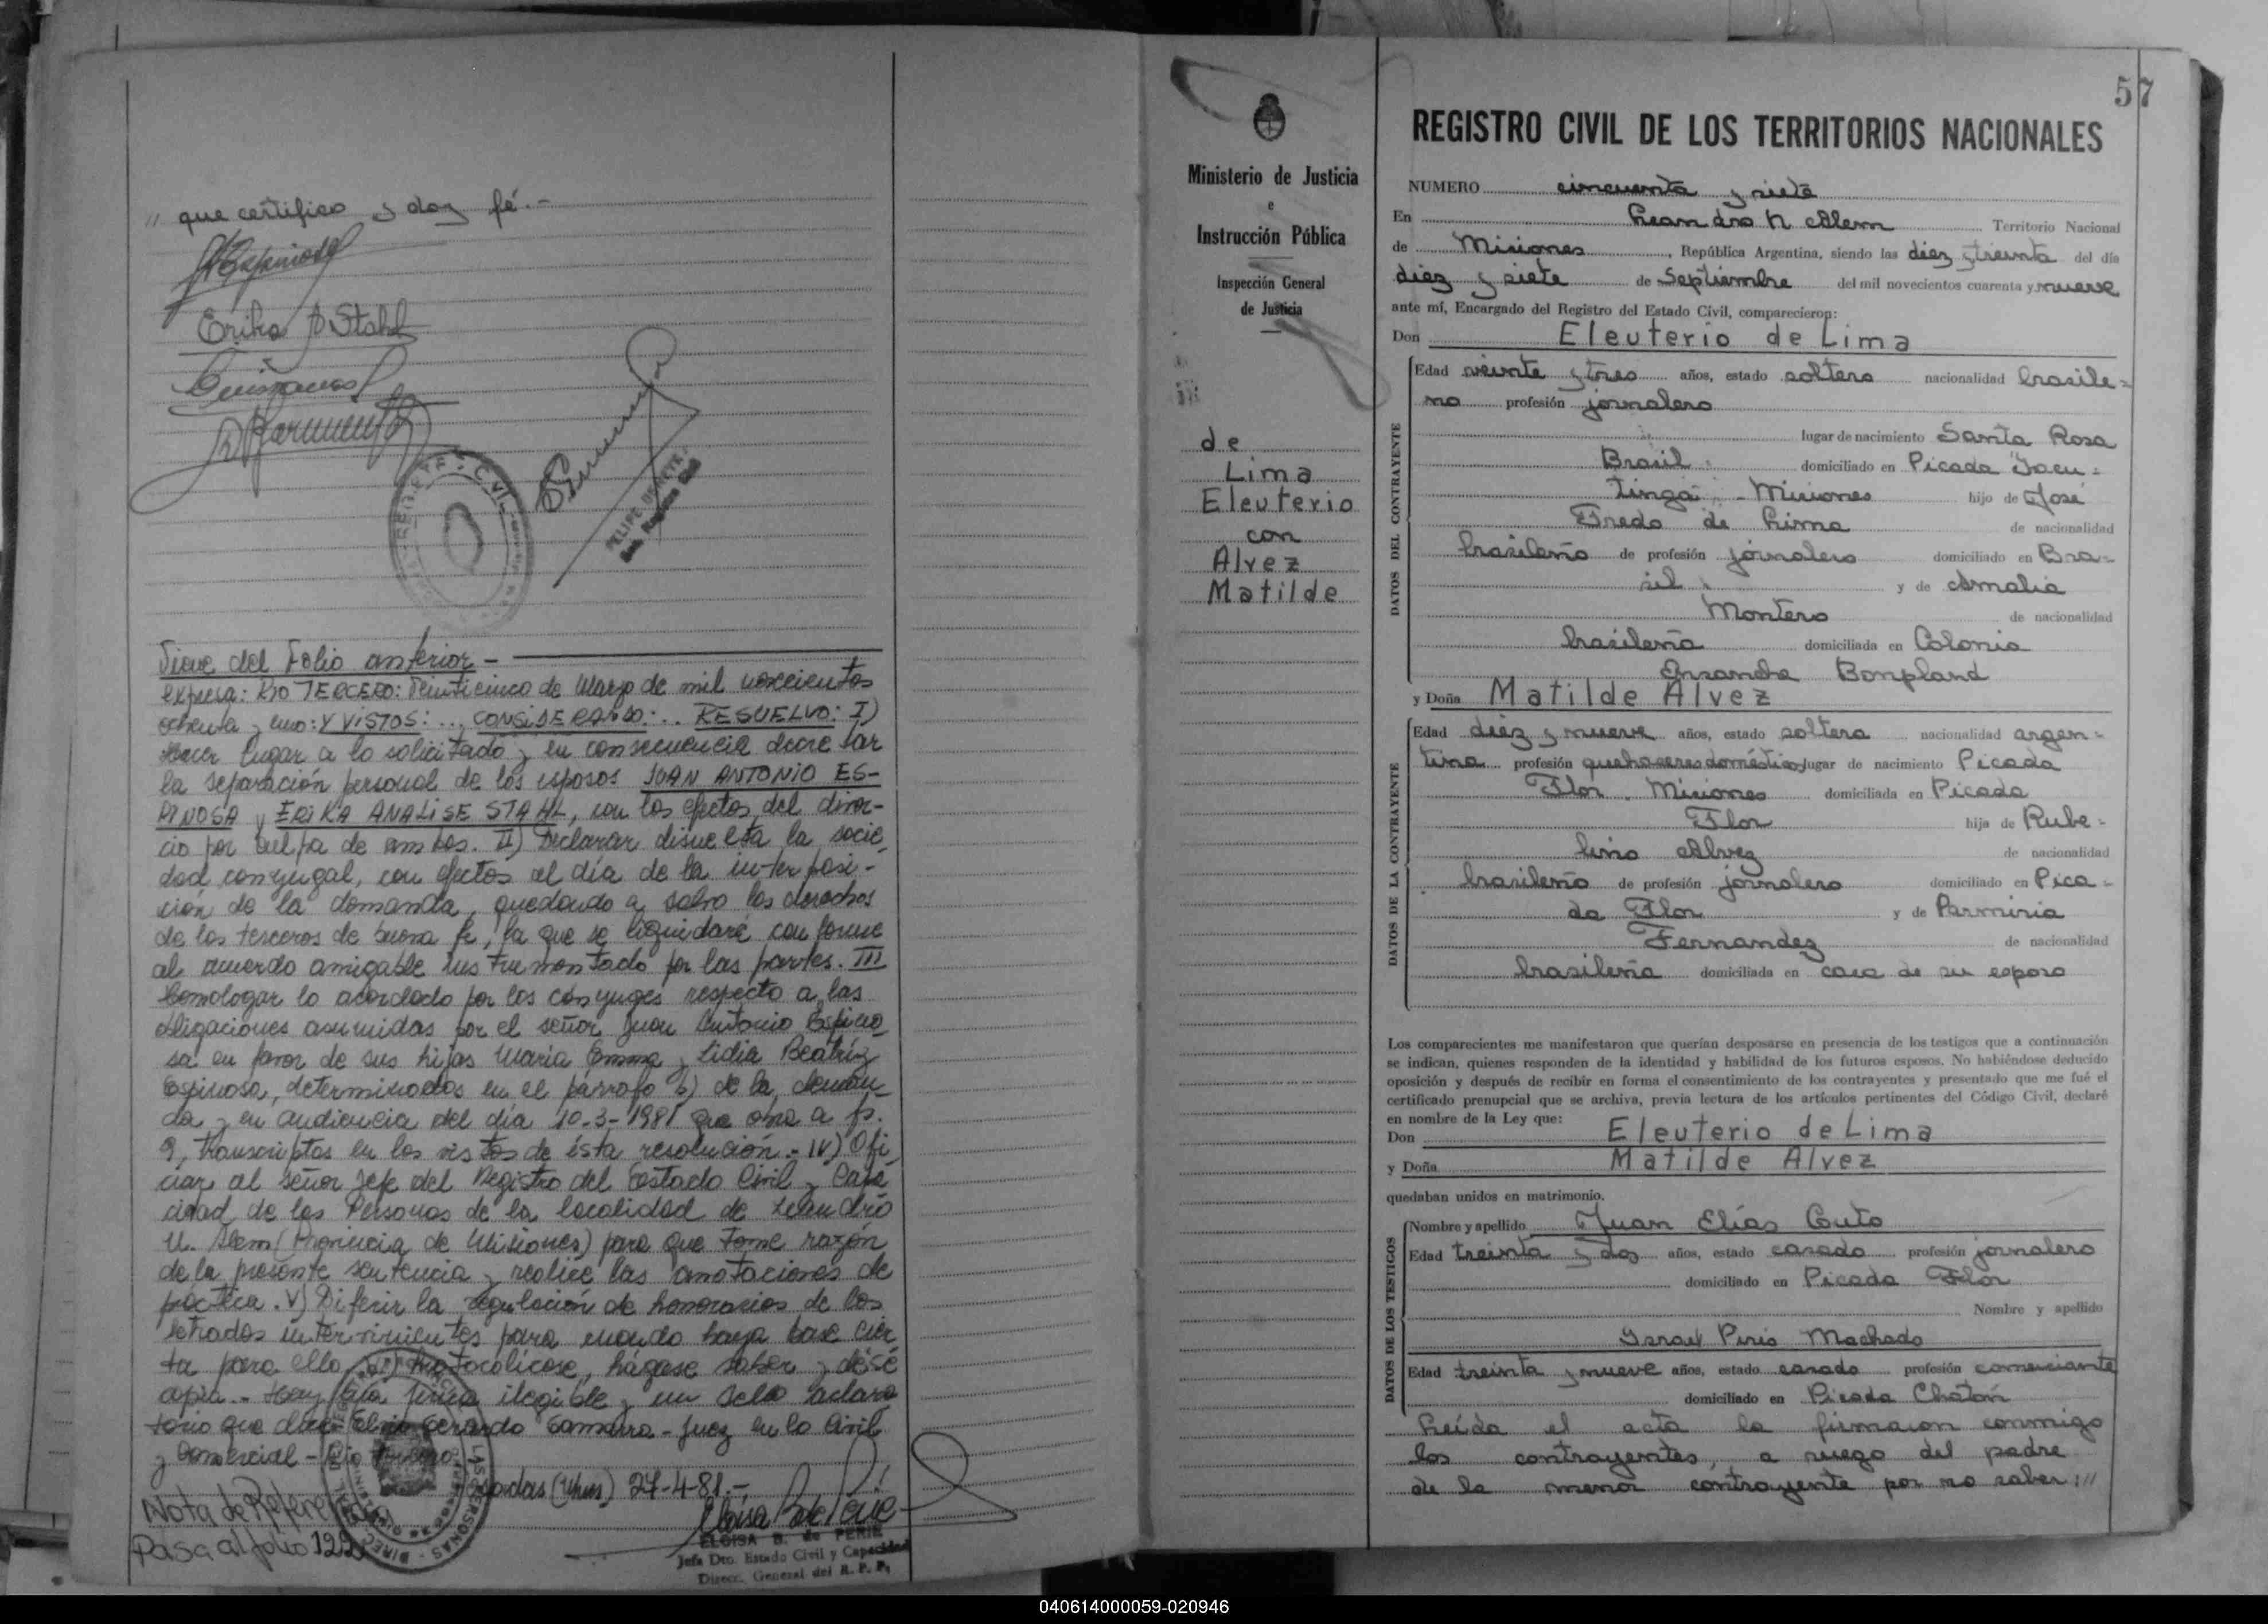 " que certifico y doy fé.-
Erika A Stahl
Viene del Folio anterior -
expresa: RIO TERCERO: Veinticinco de Marzo de mil novecientos
ochenta y uno: Y VISTOS: ... CONSIDERANDO: .. RESUELVO: I)
Hacer lugar a lo solicitado y en consecuencia decretar
la separación personal de los esposos JUAN ANTONIO ES-
PINOSA y ERIKA ANALISE STAHL, con los efectos del divor-
cio por culpa de ambos. II) Declarar disuelta la socie
dad conyugal, con efectos al día de la interposi-
ción de la demanda, quedando a salvo los derechos
de los terceros de buena fe, la que se liquidará conforme
al acuerdo amigable instrumentado por las partes. III
Homologar lo acordado por los cónyuges respecto a las
obligaciones asumidas por el señor Juan Antonio Espino
sa en favor de sus hijas María Emma y Lidia Beatríz
Espinosa, determinadas en el párrafo b) de la deman-
da y en audiencia del día 10-3-1981 que obra a fs.
9, transcriptas en los vistos de ésta resolución.- IV) Ofi
ciar al señor Jefe del Registro del Estado Civil y Capa
cidad de las Personas de la localidad de Leandro
N. Alem (Provincia de Misiones) para que tome razón
de la presente sentencia y realice las anotaciones de
práctica. V) Diferir la regulación de honorarios de los
letrados intervinientes para cuando haya base cier
ta para ello. Protocolícese, hágase saber y désé
copia.- Hay una firma ilegible y un sello aclara
torio que dice: Gerardo - Juez en lo Civil
y Comercial - Río Tercero.
Posadas (Mnes) 27-4-81.-
Nota de Referencia
Pasa al folio 122
ELOISA B. de PERIE
Jefa Dto. Estado Civil y Capacidad
Direcc. General del R. P. P.
57
Ministerio de Justicia
e
Instrucción Pública
Inspección General
de Justicia
de
Lima
Eleuterio
con
Alvez
Matilde
REGISTRO CIVIL DE LOS TERRITORIOS NACIONALES
NUMERO cincuenta y siete
En Leandro N Alem Territorio Nacional
de Misiones, República Argentina, siendo las diez y treinta del día
diez y siete de Septiembre del mil novecientos cuarenta y nueve
ante mí, Encargado del Registro del Estado Civil, comparecieron:
Don Eleuterio de Lima
DATOS DEL CONTRAYENTE
Edad veinte y tres años, estado soltero nacionalidad brasile=
no profesión jornalero
lugar de nacimiento Santa Rosa
Brasil. domiciliado en Picada Yacu=
tinga - Misiones hijo de José
Fredo de Lima de nacionalidad
brasileño de profesión jornalero domiciliado en Bra=
sil. y de Amalia
Montero de nacionalidad
brasileña domiciliada en Colonia
Ensanche Bonpland
y Doña Matilde Alvez
DATOS DE LA CONTRAYENTE
Edad diez y nueve años, estado soltera nacionalidad argen=
tina profesión quehaceres domésticos lugar de nacimiento Picada
Flor. Misiones domiciliada en Picada
Flor hija de Rube=
lino Alvez de nacionalidad
brasileño de profesión jornalero domiciliado en Pica=
da Flor y de Parmiria
Fernandez de nacionalidad
brasileña domiciliada en casa de su esposo
Los comparecientes me manifestaron que querían desposarse en presencia de los testigos que a continuación
se indican, quienes responden de la identidad y habilidad de los futuros esposos. No habiéndose deducido
oposición y después de recibir en forma el consentimiento de los contrayentes y presentado que me fué el
certificado prenupcial que se archiva, previa lectura de los artículos pertinentes del Código Civil, declaré
en nombre de la Ley que:
Don Eleuterio de Lima
y Doña Matilde Alvez
quedaban unidos en matrimonio.
DATOS DE LOS TESTIGOS
Nombre y apellido Juan Elías Couto
Edad treinta y dos años, estado casado profesión jornalero
domiciliado en Picada Flor
Nombre y apellido
Israel Piris Machado
Edad treinta y nueve años, estado casado profesión comerciante
domiciliado en Picada Chatón
Leída el acta la firmaron conmigo
los contrayentes, a ruego del padre
de la menor contrayente por no saber ://
040614000059-020946